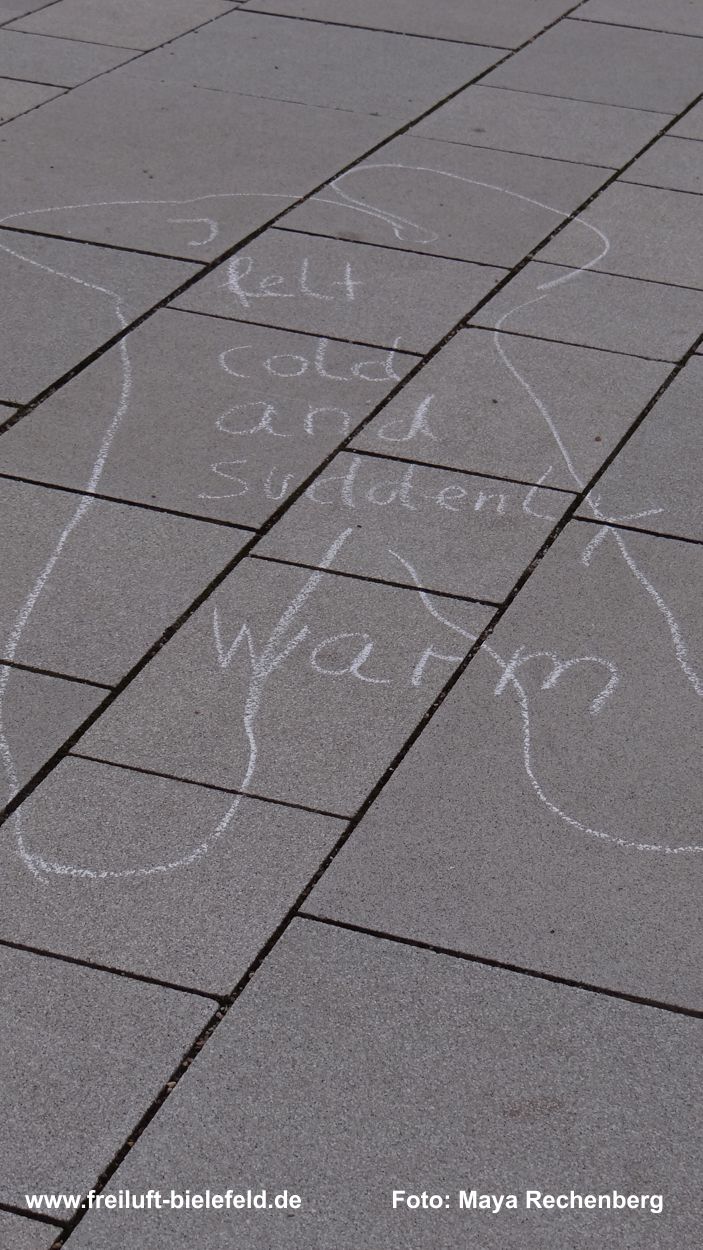 I
felt
cold
and
suddenly
Warm
www.freiluft-bielefeld.de
Foto: Maya Rechenberg